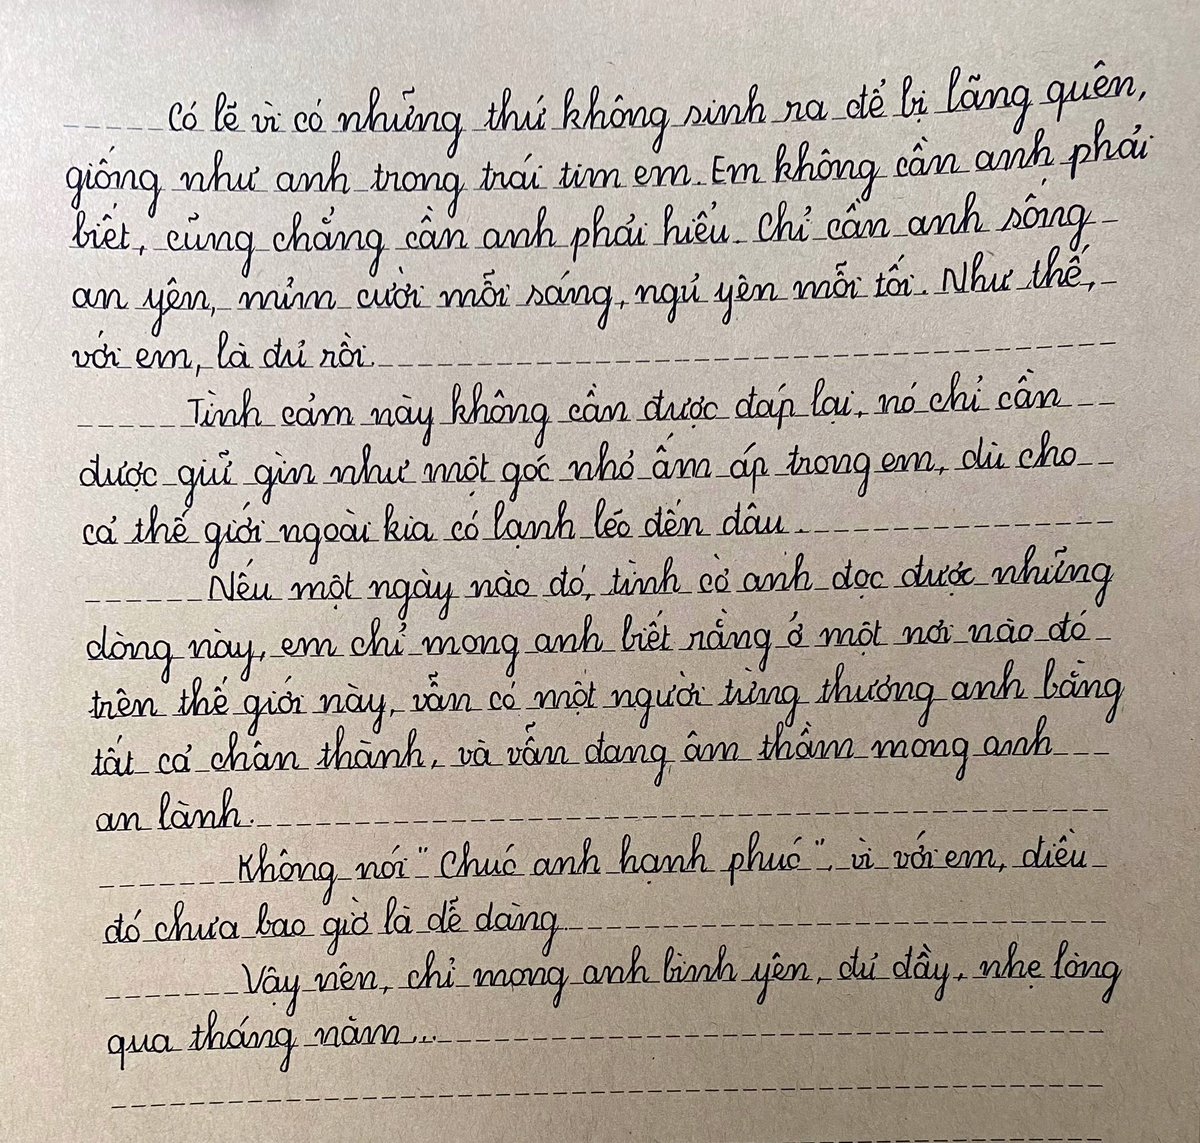 Có lẽ vì có những thứ không sinh ra để bị lãng quên,
giống như anh trong trái tim em. Em không cần anh phải
biết, cũng chẳng cần anh phải hiểu. Chỉ cần anh sống
an yên, mỉm cười mỗi sáng, ngủ yên mỗi tối. Như thế,
với em, là đủ rồi.
Tình cảm này không cần được đáp lại, nó chỉ cần
được giữ gìn như một góc nhỏ ấm áp trong em, dù cho
cả thế giới ngoài kia có lạnh lẽo đến đâu.
Nếu một ngày nào đó, tình cờ anh đọc được những
dòng này, em chỉ mong anh biết rằng ở một nơi nào đó
trên thế giới này, vẫn có một người từng thương anh bằng
tất cả chân thành, và vẫn đang âm thầm mong anh
an lành.
Không nói "Chúc anh hạnh phúc", vì với em, điều
đó chưa bao giờ là dễ dàng.
Vậy nên, chỉ mong anh bình yên, đủ đầy, nhẹ lòng
qua tháng năm...